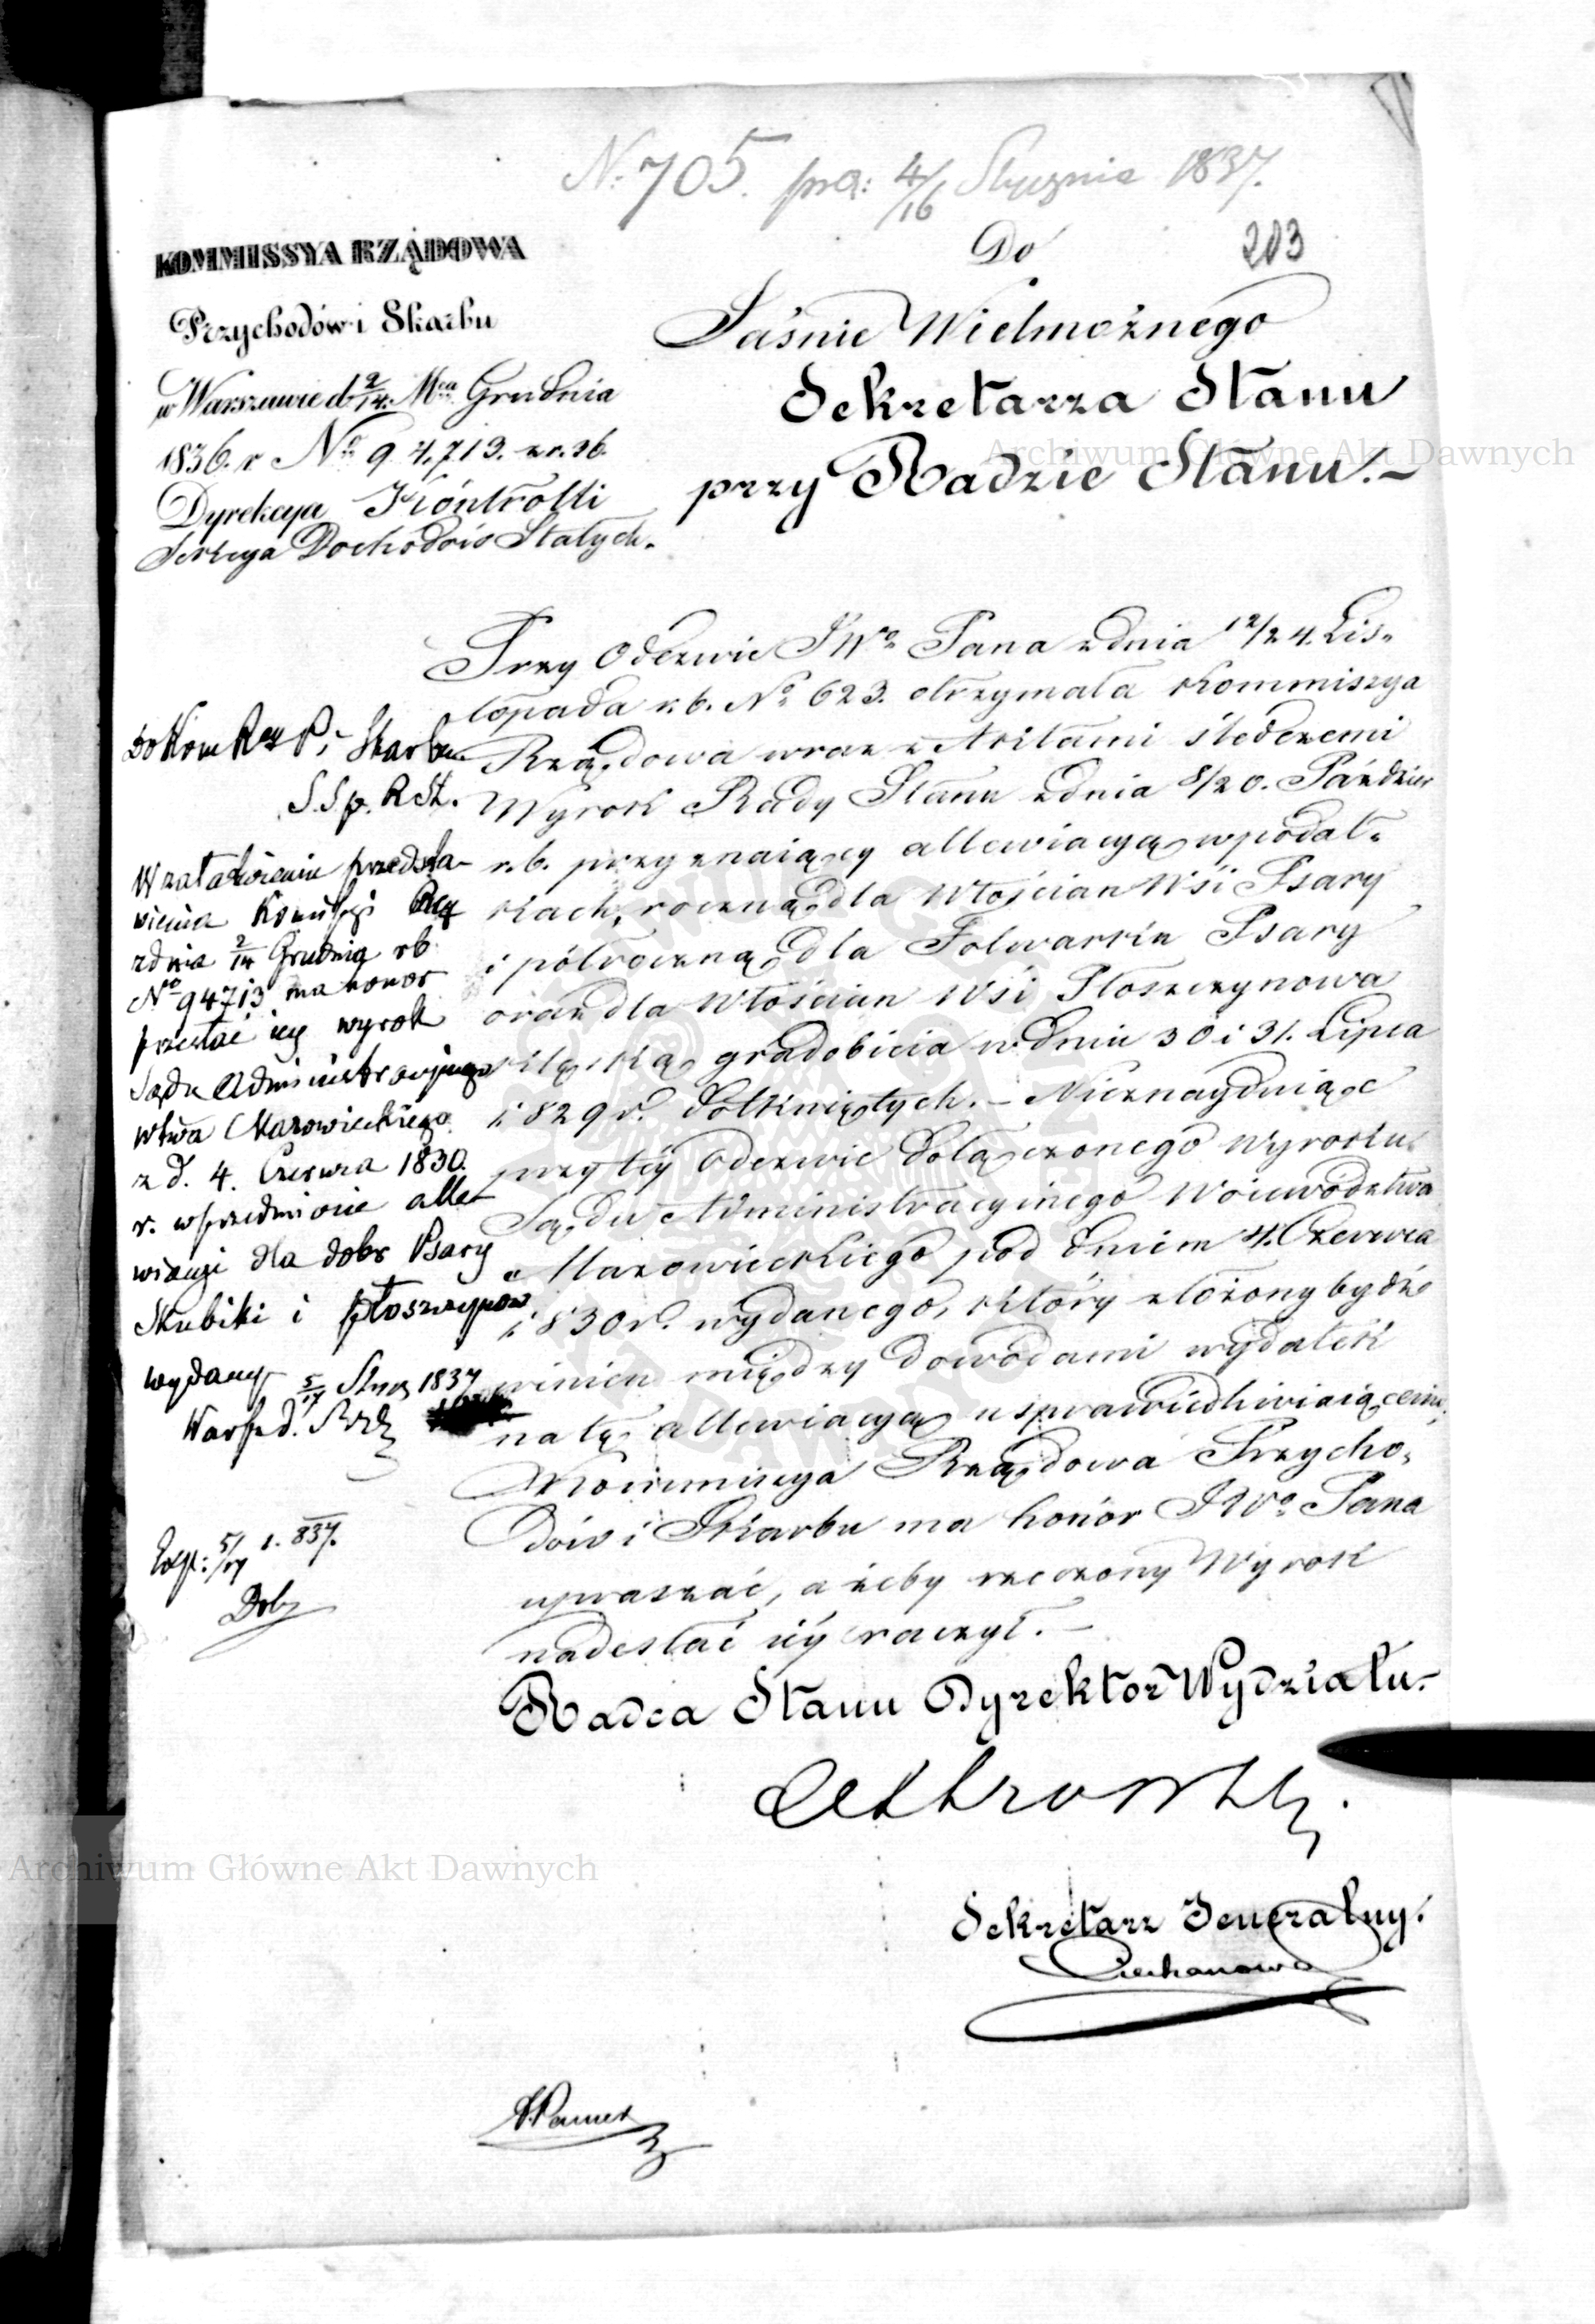 No 705. pra: 4/16 Stycznia 1837.
203
KOMMISSYA RZĄDOWA
Przychodów i Skarbu
w Warszawie d. 2/14. Mca Grudnia
1836. r No 94,713. zr. 36.
Dyrekcya Kontrolli
Sekcya Dochodów Stałych.
Do
Jaśnie Wielmożnego
Sekretarza Stanu
przy Radzie Stanu.-
Przy Odezwie JWo Pana z dnia 12/24. Lis-
topada r.b. No 623. otrzymała Kommissya
Rządowa wraz z Aktami śledczemi
Wyrok Rady Stanu z dnia 8/20. Paździer
r.b. przyznaiący allewiacyą w podat-
kach, roczną dla Włościan Wsi Psary
i półroczną dla Folwarku Psary
oraz dla Włościan Wsi Płoszczynowa
klęską gradobicia w dniu 30 i 31. Lipca
1829 r. dotkniętych. - Nieznayduiąc
przy téy Odezwie dołączonego Wyroku
Sądu Administracyinego Woiewództwa
Mazowieckiego pod dniem 4. Czerwca
1830 r. wydanego, który złożony bydź
winien między dowodami wydatek
na tę allewiacyą usprawiedliwiaiącemi,
Kommissya Rządowa Przycho-
dów i Skarbu ma honor JWo Pana
upraszać, ażeby rzeczony Wyrok
nadesłać iéy raczył. -
Radca Stanu Dyrektor Wydziału.-
Sekretarz Jeneralny.
Ciechanowski
Do Kom Rzą P. i Skarbu
S. S. p. R. St.
W załatwieniu przedsta-
wienia Komissyi Rzą
z dnia 2/14 Grudnia rb.
No 94713 ma honor
przesłać iey wyrok
Sądu Administracyjnego
wtwa Mazowieckiego
z d. 4. Czerwca 1830.
r. w przedmiocie alle-
wiacyi dla dobr Psary
Skubiki i Płoszczynow
wydany
5/17 Stycz 1837
Exp: 5/17 1. 837.